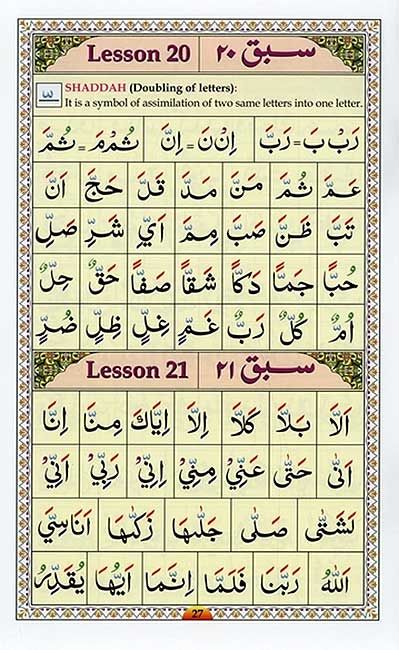 Lesson 20 سبق ۲۰
SHADDAH (Doubling of letters):
It is a symbol of assimilation of two same letters into one letter.
رَبْ بَ = رَبَّ اِنْ نَ = اِنَّ ثُمْ مَ = ثُمَّ
عَمَّ ثُمَّ مَنَّ مَدَّ قَلَّ حَجَّ اَنَّ
تَبَّ ظَنَّ صَبَّ مِمَّ اَيِّ شَرِّ صَلِّ
حُبًّا جَمًّا دَكًّا شَقًّا صَفًّا حَقٌّ حِلٌّ
اُمٌّ كُلٌّ رَبٌّ غَمٍّ غِلٍّ ظِلٍّ ضُرٍّ
Lesson 21 سبق ۲۱
اَلَّا بَلَّا كَلَّا اِلَّا اِيَّاكَ مِنَّا اِنَّا
اَنّٰى حَتّٰى عَنِّيْ مِنِّيْ اِنِّيْ رَبِّيْ اَنِّيْ
لَشَتّٰى صَلّٰى جَلّٰىهَا زَكّٰىهَا اَنَاسِيَّ
اَللّٰهُ رَبَّنَا فَلَمَّا اِنَّمَا اَيُّهَا يُقَدِّرُ
27